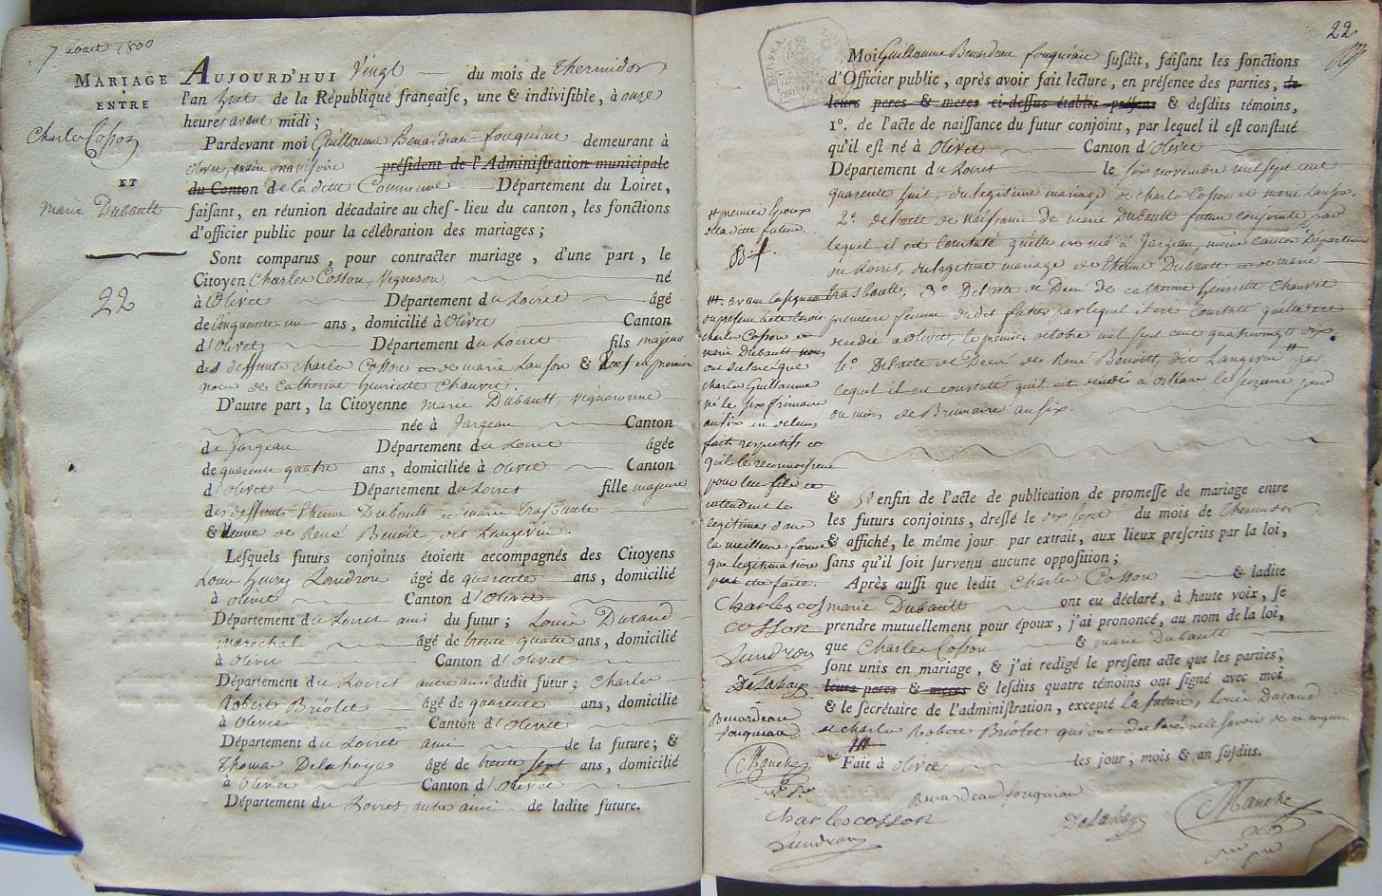 7 aout 1800
MARIAGE
ENTRE
Charle Cosson
ET
marie Dubault
22
AUJOURD'HUI Vingt du mois de thermidor
l'an huit de la République françaiſe, une & indiviſible, à onze
heures avant midi ;
Pardevant moi Guillaume Benardeau fouquiau demeurant à
olivet, maire provisoire président de l'Adminiſtration municipale
du Canton de la dette Commune Département du Loiret,
faiſant, en réunion décadaire au chef-lieu du canton, les fonctions
d'officier public pour la célébration des mariages ;
Sont comparus, pour contracter mariage, d'une part, le
Citoyen Charles Cosson, Vigneron né
à Olivet Département du Loiret âgé
de Cinquante un ans, domicilié à Olivet Canton
d'Olivet Département du Loiret fils majeur
des deffunts charles Cosson et de marie Lanson & Veuf en premier
noce de Catherine henriette Chauvet.
D'autre part, la Citoyenne marie Dubault, vigneronne
née à Jargeau Canton
de Jargeau Département du Loiret âgée
de quarente quatre ans, domiciliée à Olivet Canton
d'Olivet Département du Loiret fille majeure
des deffunts Etienne Dubault et marie trasbaule
& Veuve de René Benoît dit Langevin.
Leſquels futurs conjoints étoient accompagnés des Citoyens
Louis henry Landron âgé de quarente ans, domicilié
à olivet Canton d'Olivet
Département du Loiret ami du futur ; Louis Durand
marechal âgé de trente quatre ans, domicilié
à Olivet Canton d'Olivet
Département du Loiret autre ami dudit futur ; Charles
Robert Briolet âgé de quarente ans, domicilié
à Olivet Canton d'Olivet
Département du Loiret ami de la future ; &
Thomas Delahaye âgé de trente sept ans, domicilié
à Olivet Canton d'Olivet
Département du Loiret autre ami de ladite future.
22
Moi Guillaume Benardeau fouquiau ſuſdit, faiſant les fonctions
d'Officier public, après avoir fait lecture, en préſence des parties, de
leurs peres & meres ci-deſſus établis préſens & deſdits témoins,
1°. de l'acte de naiſſance du futur conjoint, par lequel il eſt conſtaté
qu'il eſt né à Olivet Canton d'Olivet
Département du Loiret le ſix novembre mil ſept cent
quarente huit, du legitime mariage de charle Cosson et marie Lanson.
2°. de l'acte de naissance de marie Dubault future conjointe, par
lequel il est Constaté qu'elle est né à Jargeau, même canton Département
du Loiret, du legitime mariage de Etienne Dubault et de marie
trasbaulte, 3° De l'acte de Deces de catherine henriette Chauvet
premiere femme dudit futur par lequel il est Constaté quelle est
decedée a Olivet le premier octobre mil sept cent quatre vingt dix
4°. De l'acte de Deces de René Benoist, dit Langevin par
lequel il est constaté qu'il est decedé a orléans le ſeizieme jour
du mois de Brumaire an six.
& 5° enfin de l'acte de publication de promeſſe de mariage entre
les futurs conjoints, dreſſé le dix sept du mois de thermidor
& affiché, le même jour par extrait, aux lieux preſcrits par la loi,
ſans qu'il ſoit ſurvenu aucune oppoſition ;
Après auſſi que ledit Charles Cosson & ladite
marie Dubault ont eu déclaré, à haute voix, ſe
prendre mutuellement pour époux, j'ai prononcé, au nom de la loi,
que Charles Cosson & marie Dubault
ſont unis en mariage, & j'ai redigé le preſent acte que les parties,
leurs peres & meres & leſdits quatre témoins ont ſigné avec moi
& le ſecrétaire de l'adminiſtration, excepté la future, Louis Durand
et charles Robert Briolet qui ont déclaré ne le savoir de ce enquis
Fait à Olivet les jour, mois & an ſuſdits.
# premier Epoux
de la dette future.
B. f.
charle Cosson et
marie Dubault
ont declaré que
charle Guillaume
né le six frimaire
an six
qu'il le reconnoissent
pour leur fils et
entendent le
legitimer dans
la meilleure forme
que legitimation
peut etre faite.
Charles cosson
Landron
Delahaye
Benardeau
fouquiau
Manche
Benardeau fouquiau
Charles cosson
Delahaye
Manche
Landron